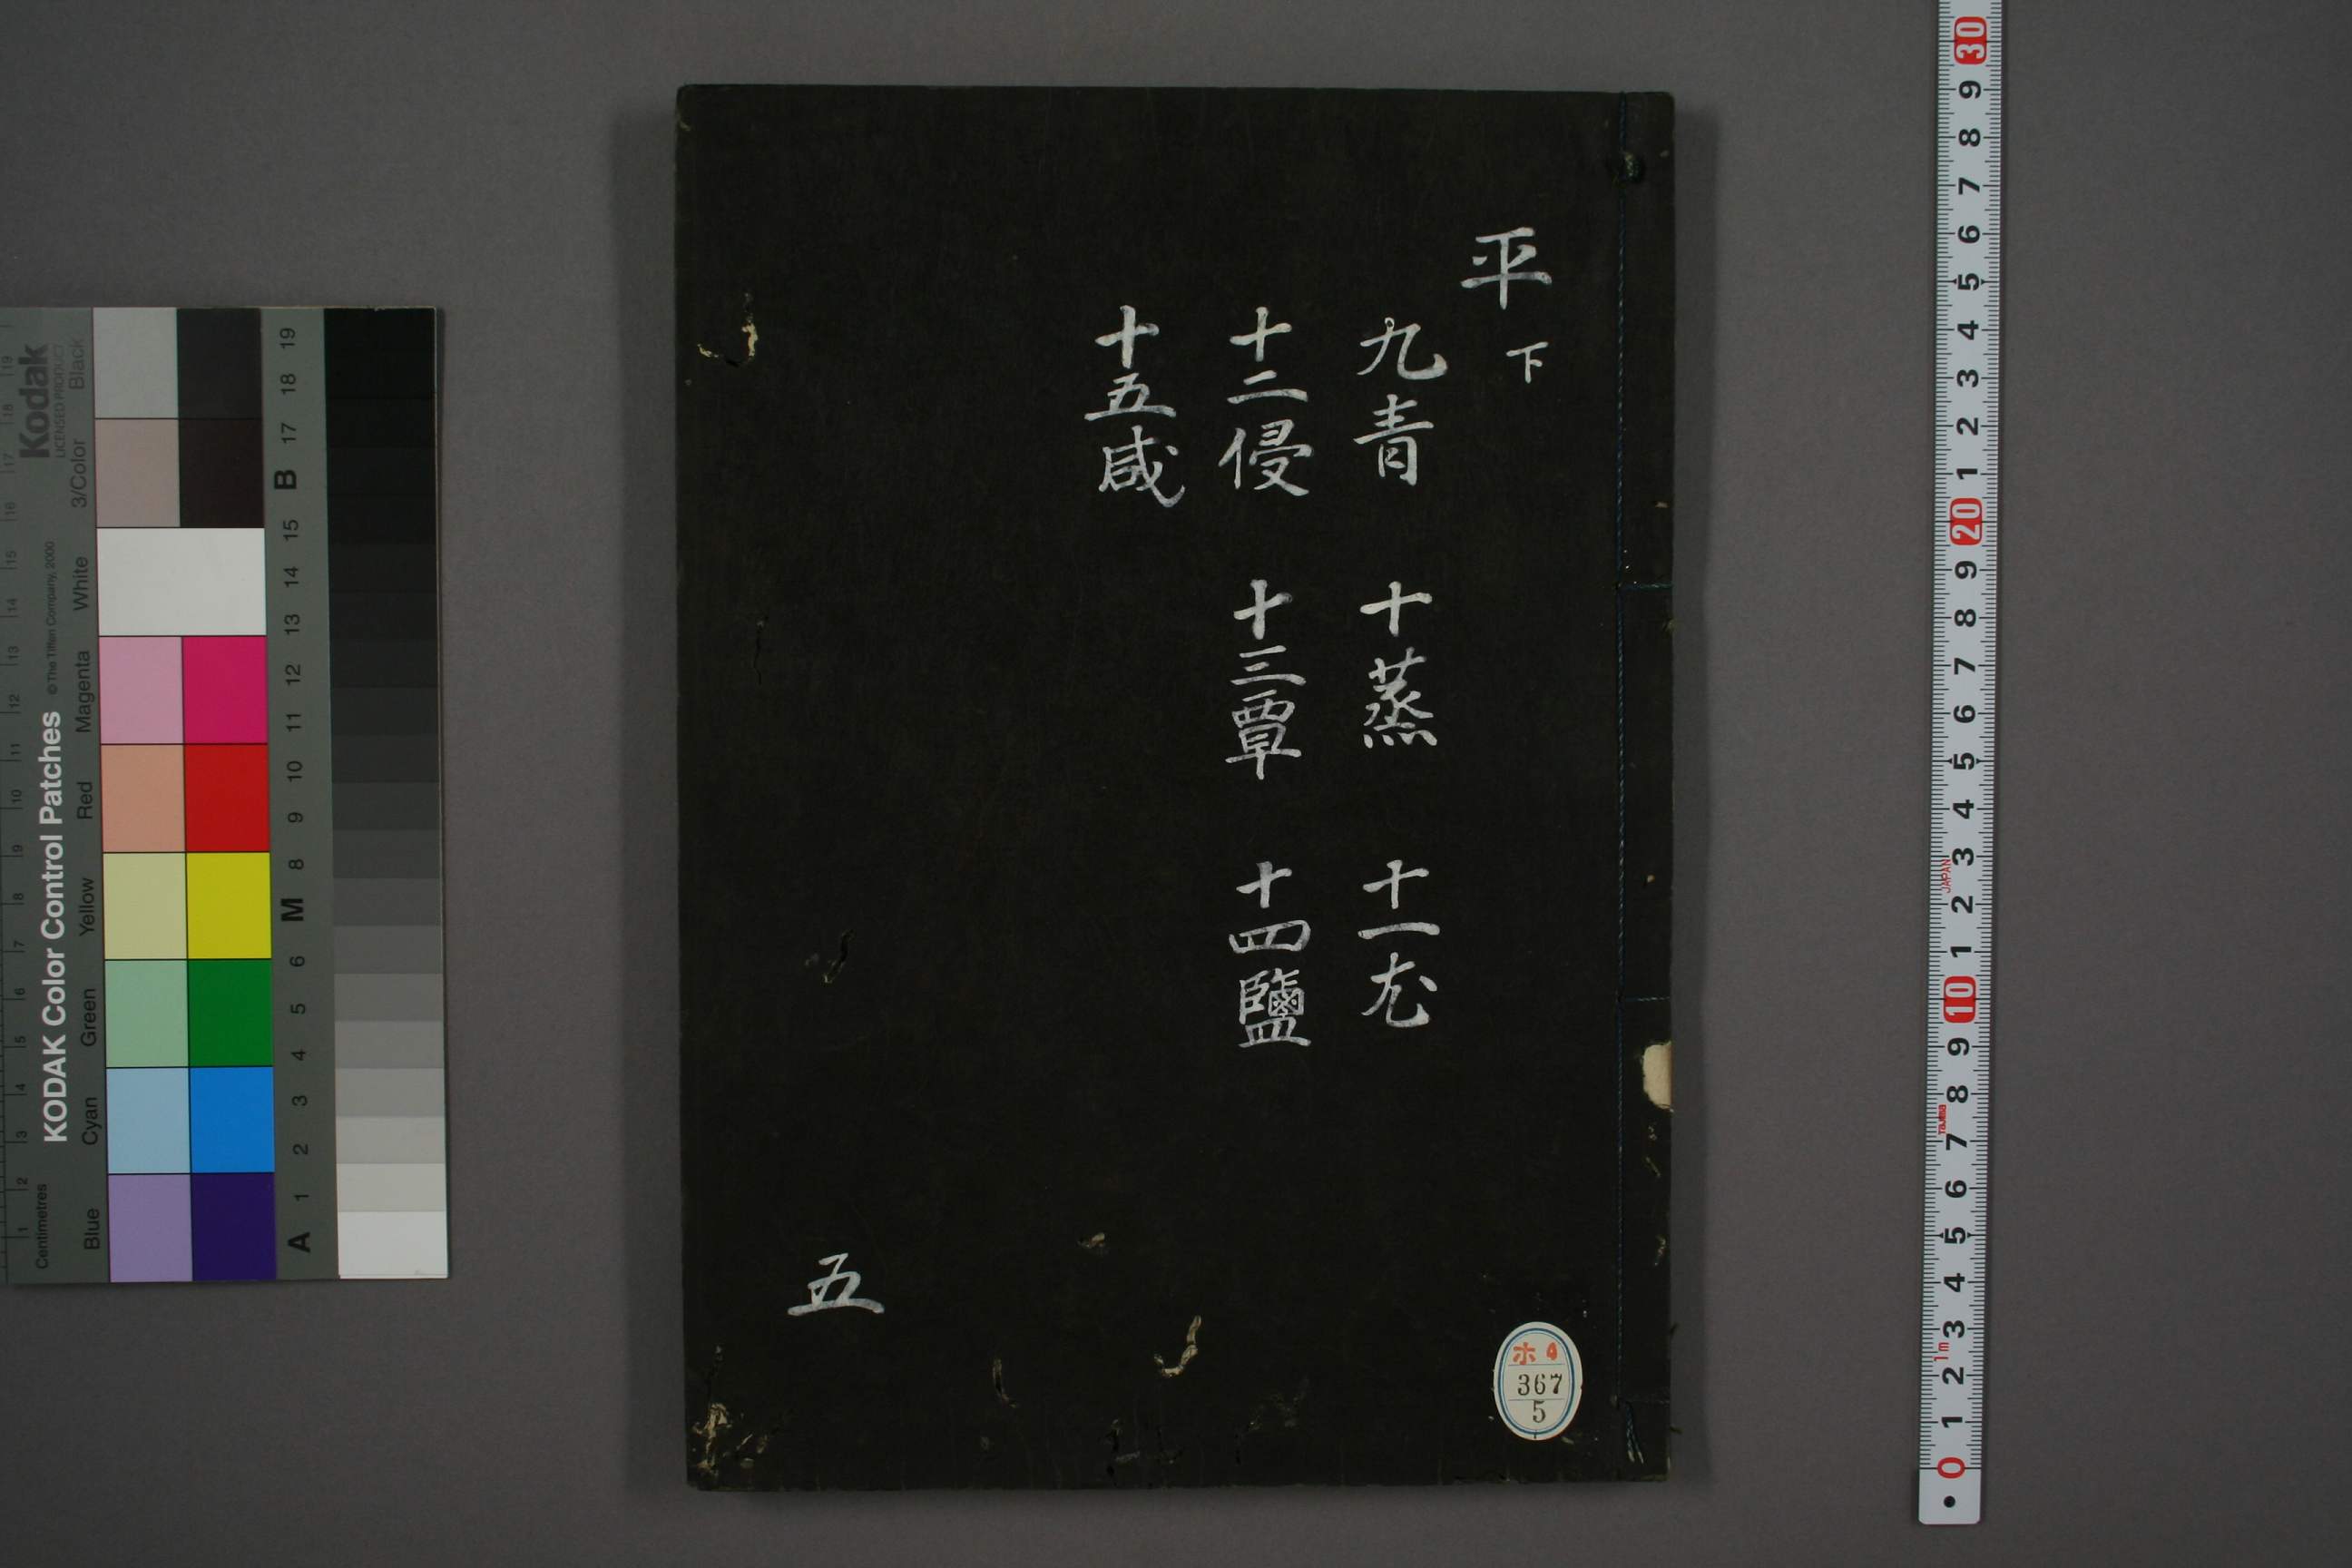 平下
九青 十蒸 十一尤
十二侵 十三覃 十四鹽
十五咸
五
ホ4
367
5
KODAK Color Control Patches
Kodak
LICENSED PRODUCT
© The Tiffen Company, 2000
Centimetres
Blue Cyan Green Yellow Red Magenta White 3/Color Black
1 2 3 4 5 6 7 8 9 10 11 12 13 14 15 16 17 18 19
A 1 2 3 4 5 6 M 8 9 10 11 12 13 14 15 B 17 18 19
30 9 8 7 6 5 4 3 2 1 20 9 8 7 6 5 4 3 2 1 10 9 8 7 6 5 4 3 2 1 0
JAPAN
Tajima
1m